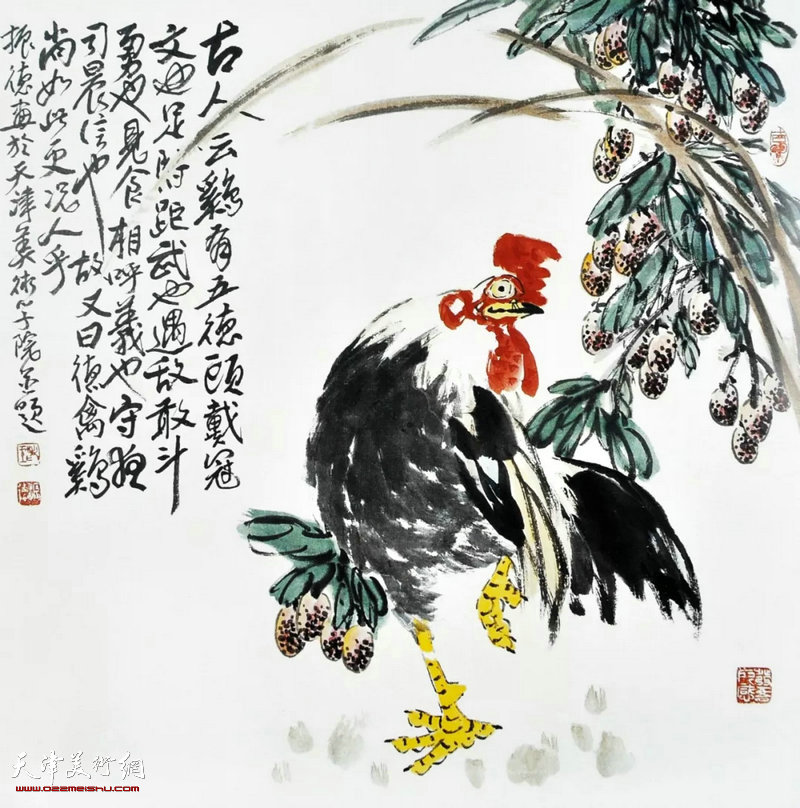 古人云鷄有五德頭戴冠
文也足附距武也遇敌敢斗
勇也見食相呼義也守夜
司晨信也故又曰德禽鷄
尚如此更况人乎
振德畫於天津美術学院并題
天津美術網
www.022meishu.com